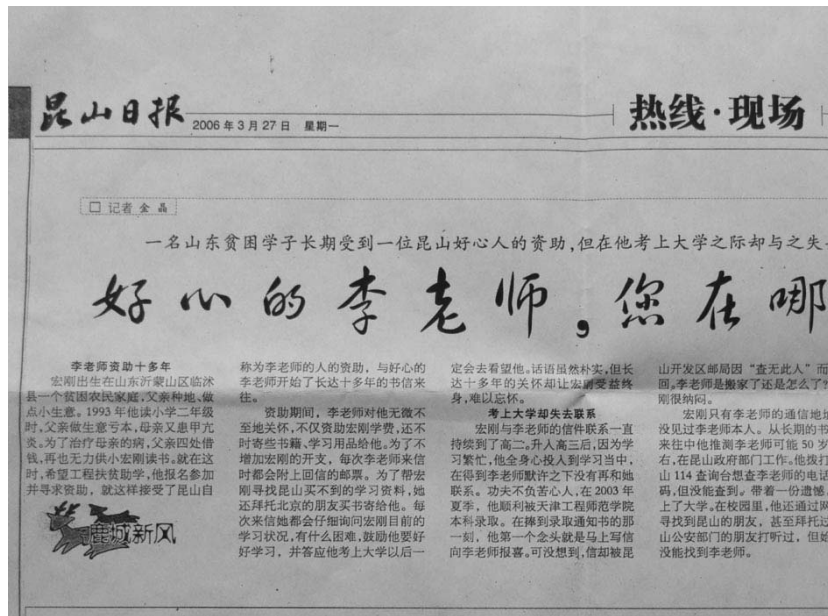 昆山日报
2006年3月27日 星期一
热线·现场
□ 记者 金晶
一名山东贫困学子长期受到一位昆山好心人的资助,但在他考上大学之际却与之失
好心的李老师,您在哪
李老师资助十多年
宏刚出生在山东沂蒙山区临沭
县一个贫困农民家庭,父亲种地、做
点小生意。1993年他读小学二年级
时,父亲做生意亏本,母亲又患甲亢
炎。为了治疗母亲的病,父亲四处借
钱,再也无力供小宏刚读书。就在这
时,希望工程扶贫助学,他报名参加
并寻求资助,就这样接受了昆山自
鹿城新风
称为李老师的人的资助,与好心的
李老师开始了长达十多年的书信来
往。
资助期间,李老师对他无微不
至地关怀,不仅资助宏刚学费,还不
时寄些书籍、学习用品给他。为了不
增加宏刚的开支,每次李老师来信
时都会附上回信的邮票。为了帮宏
刚寻找昆山买不到的学习资料,她
还拜托北京的朋友买书寄给他。每
次来信她都会仔细询问宏刚目前的
学习状况,有什么困难,鼓励他要好
好学习,并答应他考上大学以后一
定会去看望他。话语虽然朴实,但长
达十多年的关怀却让宏刚受益终
身,难以忘怀。
考上大学却失去联系
宏刚与李老师的信件联系一直
持续到了高二。升入高三后,因为学
习繁忙,他全身心投入到学习当中,
在得到李老师默许之下没有再和她
联系。功夫不负苦心人,在2003年
夏季,他顺利被天津工程师范学院
本科录取。在捧到录取通知书的那
一刻,他第一个念头就是马上写信
向李老师报喜。可没想到,信却被昆
山开发区邮局因“查无此人”而
回。李老师是搬家了还是怎么了
刚很纳闷。
宏刚只有李老师的通信地
没见过李老师本人。从长期的书
来往中他推测李老师可能50岁
右,在昆山政府部门工作。他拨打
山114查询台想查李老师的电话
码,但没能查到。带着一份遗憾
上了大学。在校园里,他还通过网
寻找到昆山的朋友,甚至拜托过
山公安部门的朋友打听过,但始
没能找到李老师。